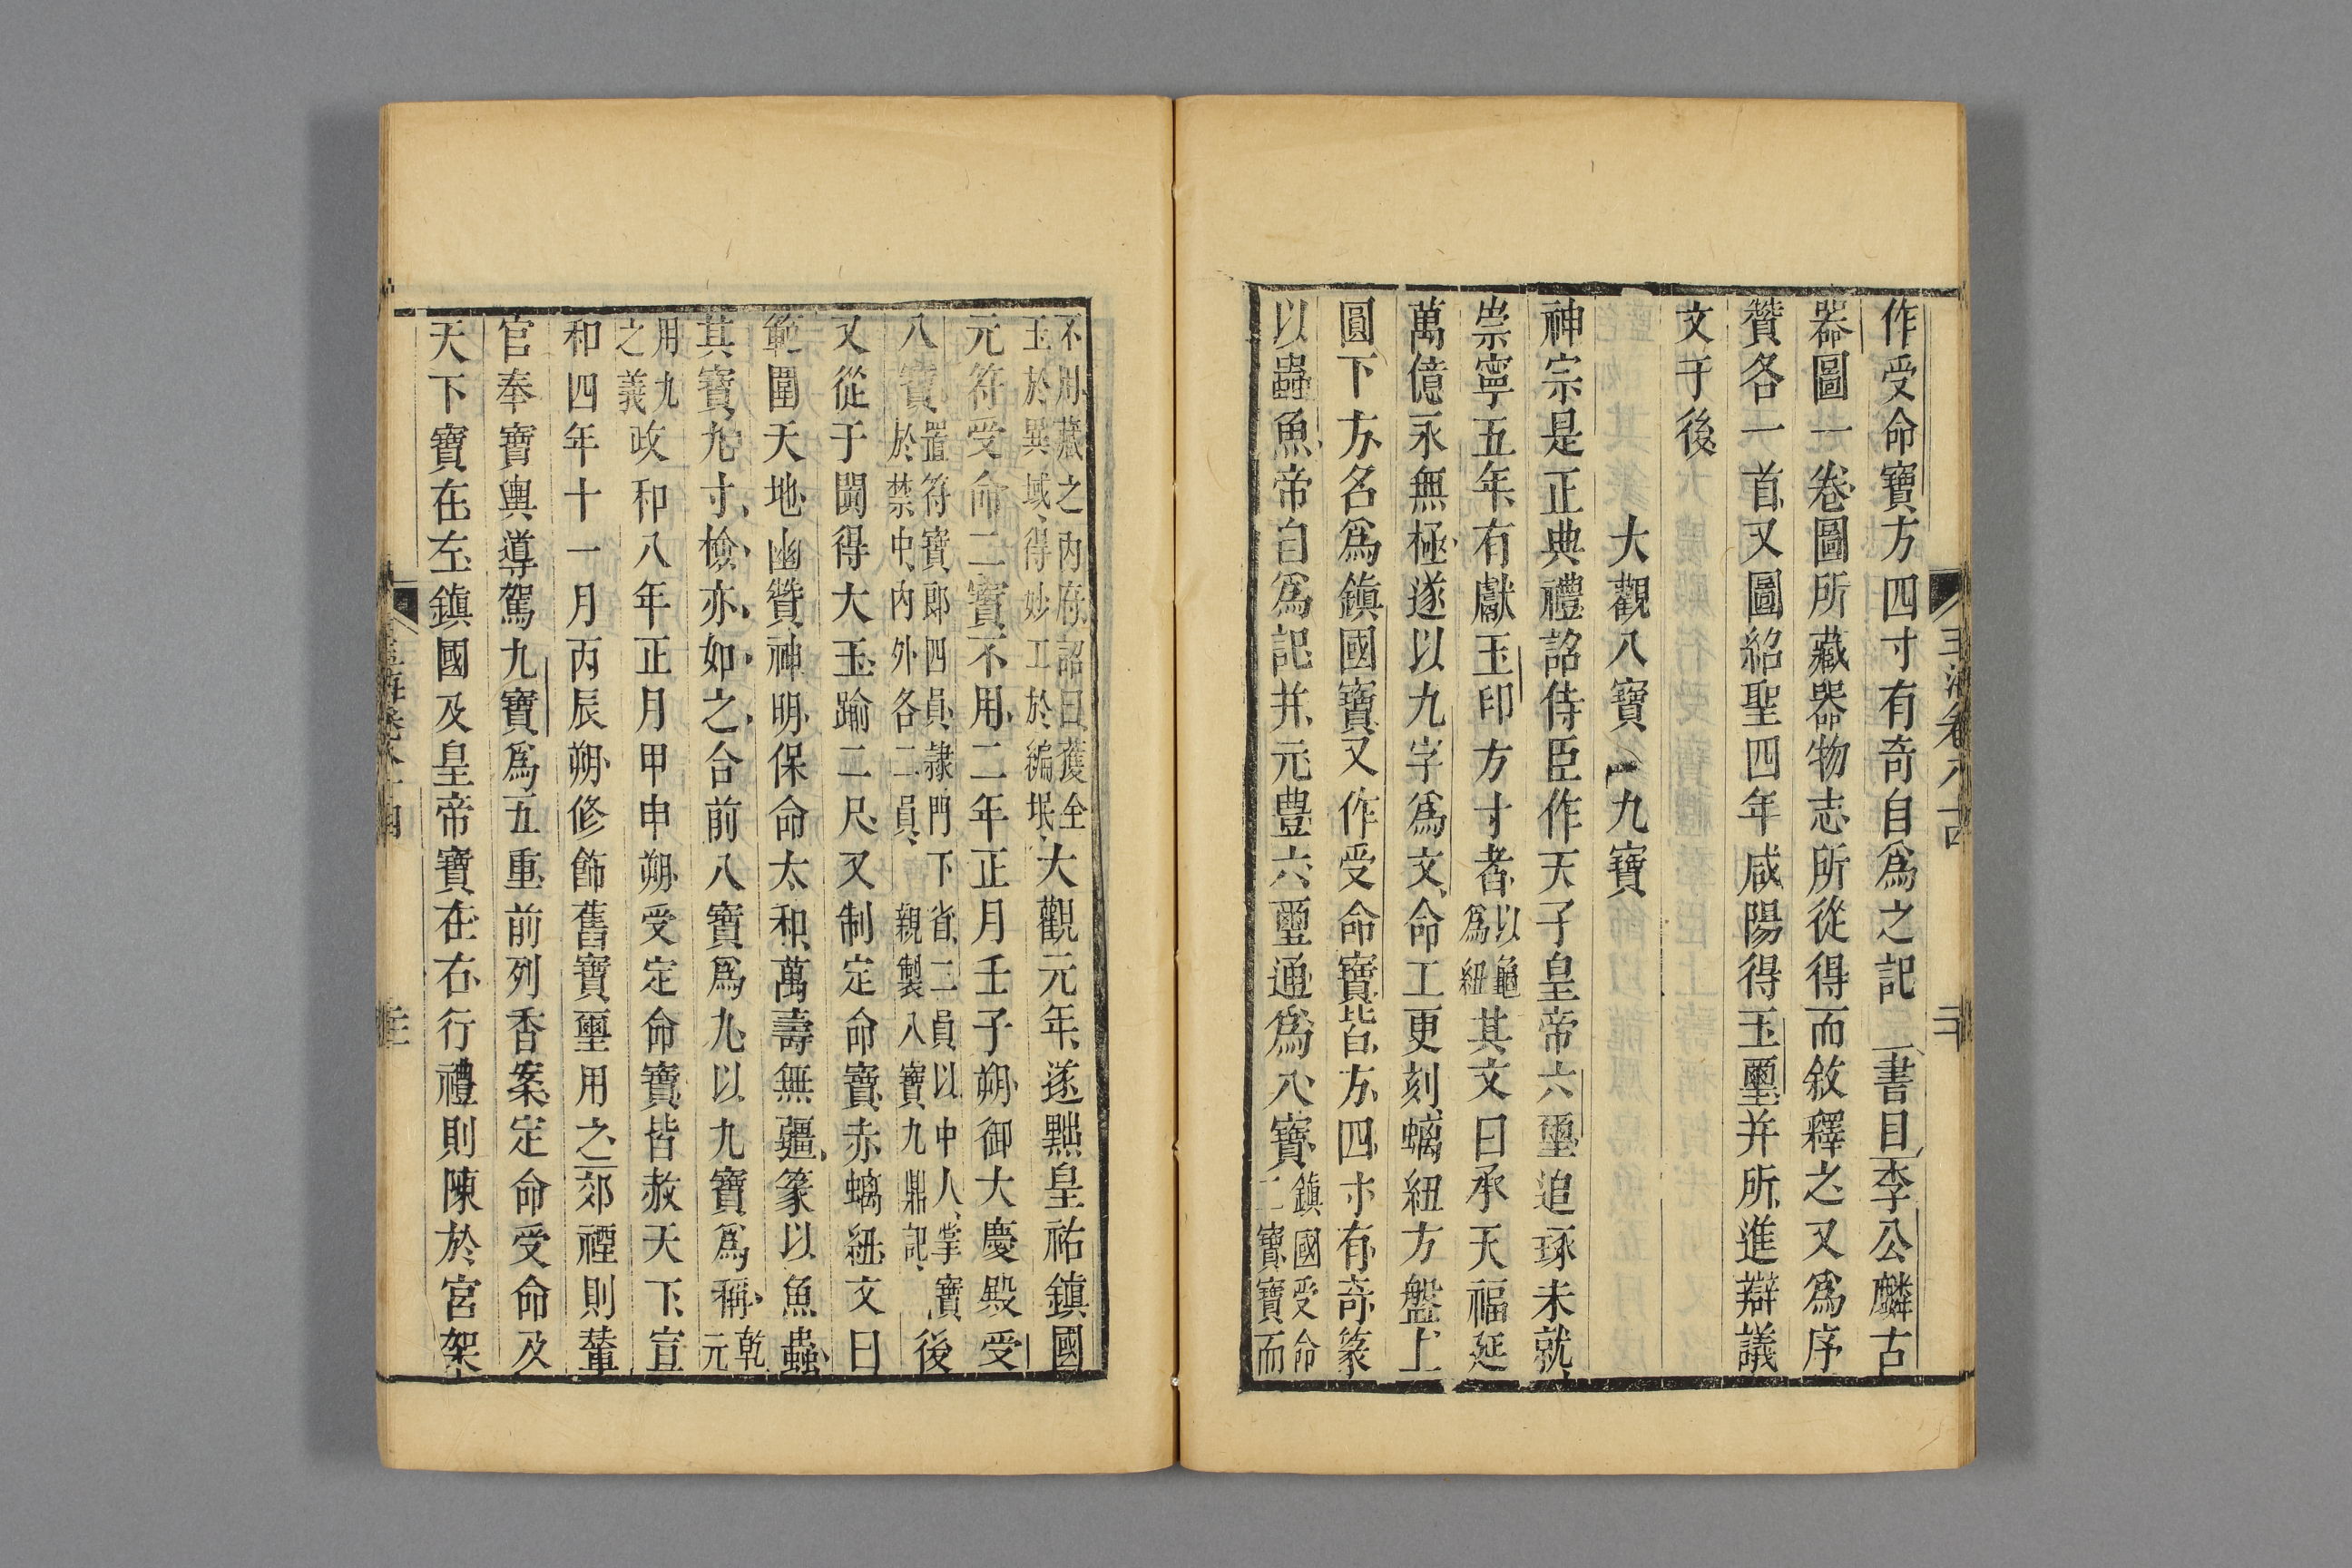 作受命寶方四寸有奇自爲之記書目李公麟古
器圖一卷圖所藏器物志所從得而敘釋之又爲序
贊各一首又圖紹聖四年咸陽得玉璽并所進辯議
文于後
大觀八寶 九寶
神宗是正典禮詔侍臣作天子皇帝六璽追琢未就
崇寧五年有獻玉印方寸者以龜爲紐其文曰承天福延
萬億永無極遂以九字爲文命工更刻螭紐方盤上
圓下方名爲鎮國寶又作受命寶皆方四寸有奇篆
以蟲魚帝自爲記并元豊六璽通爲八寶鎮國受命二寶寶而
不用藏之內府詔曰獲全玉於異域得妙工於編氓大觀元年遂黜皇祐鎮國
元符受命二寶不用二年正月壬子朔御大慶殿受
八寶置符寶郎四員隷門下省二員以中人掌寶於禁中內外各二員親製八寶九鼎記後
又從于闐得大玉踰二尺又制定命寶赤螭紐文曰
範圍天地幽贊神明保命太和萬壽無疆篆以魚蟲
其寶九寸檢亦如之合前八寶爲九以九寶爲稱乾元
用九之義政和八年正月甲申朔受定命寶皆赦天下宣
和四年十一月丙辰朔修飾舊寶璽用之郊禋則輦
官奉寶輿導駕九寶爲五重前列香案定命受命及
天下寶在左鎮國及皇帝寶在右行禮則陳於宮架